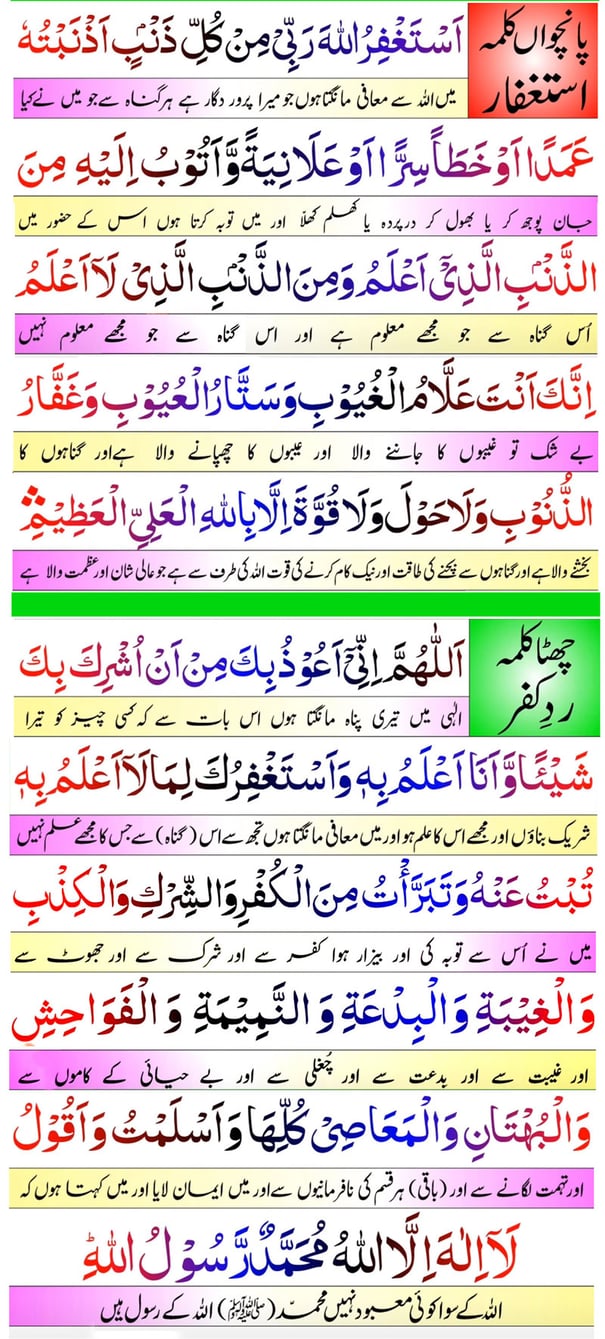 پانچواں کلمہ
استغفار
اَسْتَغْفِرُ اللهَ رَبِّىْ مِنْ كُلِّ ذَنْۢبٍ اَذْنَبْتُهٗ
میں اللہ سے معافی مانگتا ہوں جو میرا پروردگار ہے ہر گناہ سے جو میں نے کیا
عَمَدًا اَوْ خَطَأً سِرًّا اَوْ عَلَانِيَةً وَّاَتُوْبُ اِلَيْهِ مِنَ
جان بوجھ کر یا بھول کر درپردہ یا کھلم کھلّا اور میں توبہ کرتا ہوں اس کے حضور میں
الذَّنْۢبِ الَّذِىْٓ اَعْلَمُ وَمِنَ الذَّنْۢبِ الَّذِىْ لَآ اَعْلَمُ
اُس گناہ سے جو مجھے معلوم ہے اور اس گناہ سے جو مجھے معلوم نہیں
اِنَّكَ اَنْتَ عَلَّامُ الْغُيُوْبِ وَسَتَّارُ الْعُيُوْبِ وَغَفَّارُ
بے شک تو غیبوں کا جاننے والا اور عیبوں کا چھپانے والا ہے اور گناہوں کا
الذُّنُوْبِ وَلَا حَوْلَ وَلَا قُوَّةَ اِلَّا بِاللهِ الْعَلِىِّ الْعَظِيْمِ
بخشنے والا ہے اور گناہوں سے بچنے کی طاقت اور نیک کام کرنے کی قوت اللہ کی طرف سے ہے جو عالی شان اور عظمت والا ہے
چھٹا کلمہ
ردِ کفر
اَللّٰهُمَّ اِنِّىْٓ اَعُوْذُ بِكَ مِنْ اَنْ اُشْرِكَ بِكَ
الٰہی میں تیری پناہ مانگتا ہوں اس بات سے کہ کسی چیز کو تیرا
شَيْئًا وَّاَنَا اَعْلَمُ بِهٖ وَاَسْتَغْفِرُكَ لِمَا لَآ اَعْلَمُ بِهٖ
شریک بناؤں اور مجھے اس کا علم ہو اور میں معافی مانگتا ہوں تجھ سے اس (گناہ) سے جس کا مجھے علم نہیں
تُبْتُ عَنْهُ وَتَبَرَّأْتُ مِنَ الْكُفْرِ وَالشِّرْكِ وَالْكِذْبِ
میں نے اُس سے توبہ کی اور بیزار ہوا کفر سے اور شرک سے اور جھوٹ سے
وَالْغِيْبَةِ وَالْبِدْعَةِ وَالنَّمِيْمَةِ وَالْفَوَاحِشِ
اور غیبت سے اور بدعت سے اور چُغلی سے اور بے حیائی کے کاموں سے
وَالْبُهْتَانِ وَالْمَعَاصِىْ كُلِّهَا وَاَسْلَمْتُ وَاَقُوْلُ
اور تہمت لگانے سے اور (باقی) ہر قسم کی نافرمانیوں سے اور میں ایمان لایا اور میں کہتا ہوں کہ
لَآ اِلٰهَ اِلَّا اللهُ مُحَمَّدٌ رَّسُوْلُ اللهِ
اللہ کے سوا کوئی معبود نہیں محمد (ﷺ) اللہ کے رسول ہیں